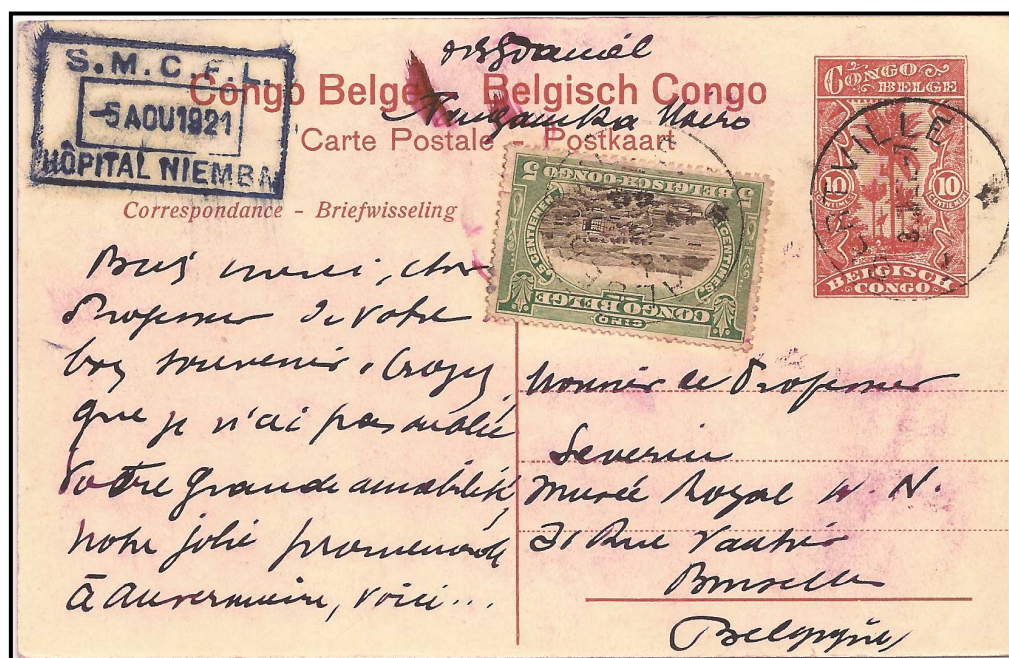 S.M.C.F.L.
-5 AOU 1921
HÔPITAL NIEMBA
Congo Belge Belgisch Congo
Tanganika Moero
Carte Postale - Postkaart
Correspondance - Briefwisseling
CONGO BELGE
10 10
CENTIMES CENTIEMEN
BELGISCH CONGO
VILLE
5 BELGISCH-CONGO 5
5 CENTIEMEN 5 CENTIMES
CONGO BELGE
CINQ
merci, cher
Professeur de votre
bon souvenir. Croyez
que je n'ai pas oublié
votre grande amabilité
notre jolie promenade
à voici...
Monsieur le Professeur
Severin
Musée Royal H. N.
31 Rue Vautier
Bruxelles
Belgique